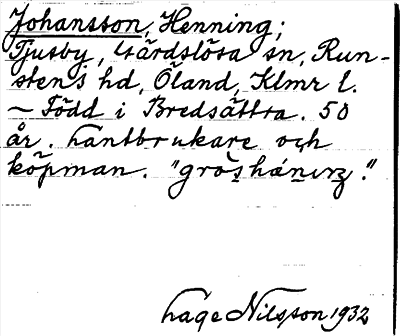 Johansson, Henning;
Tjusby, Gärdslösa sn, Run-
stens hd, Öland, Klmr l.
– Född i Bredsättra. 50
år. Lantbrukare och
köpman.
Lage Nilsson 1932